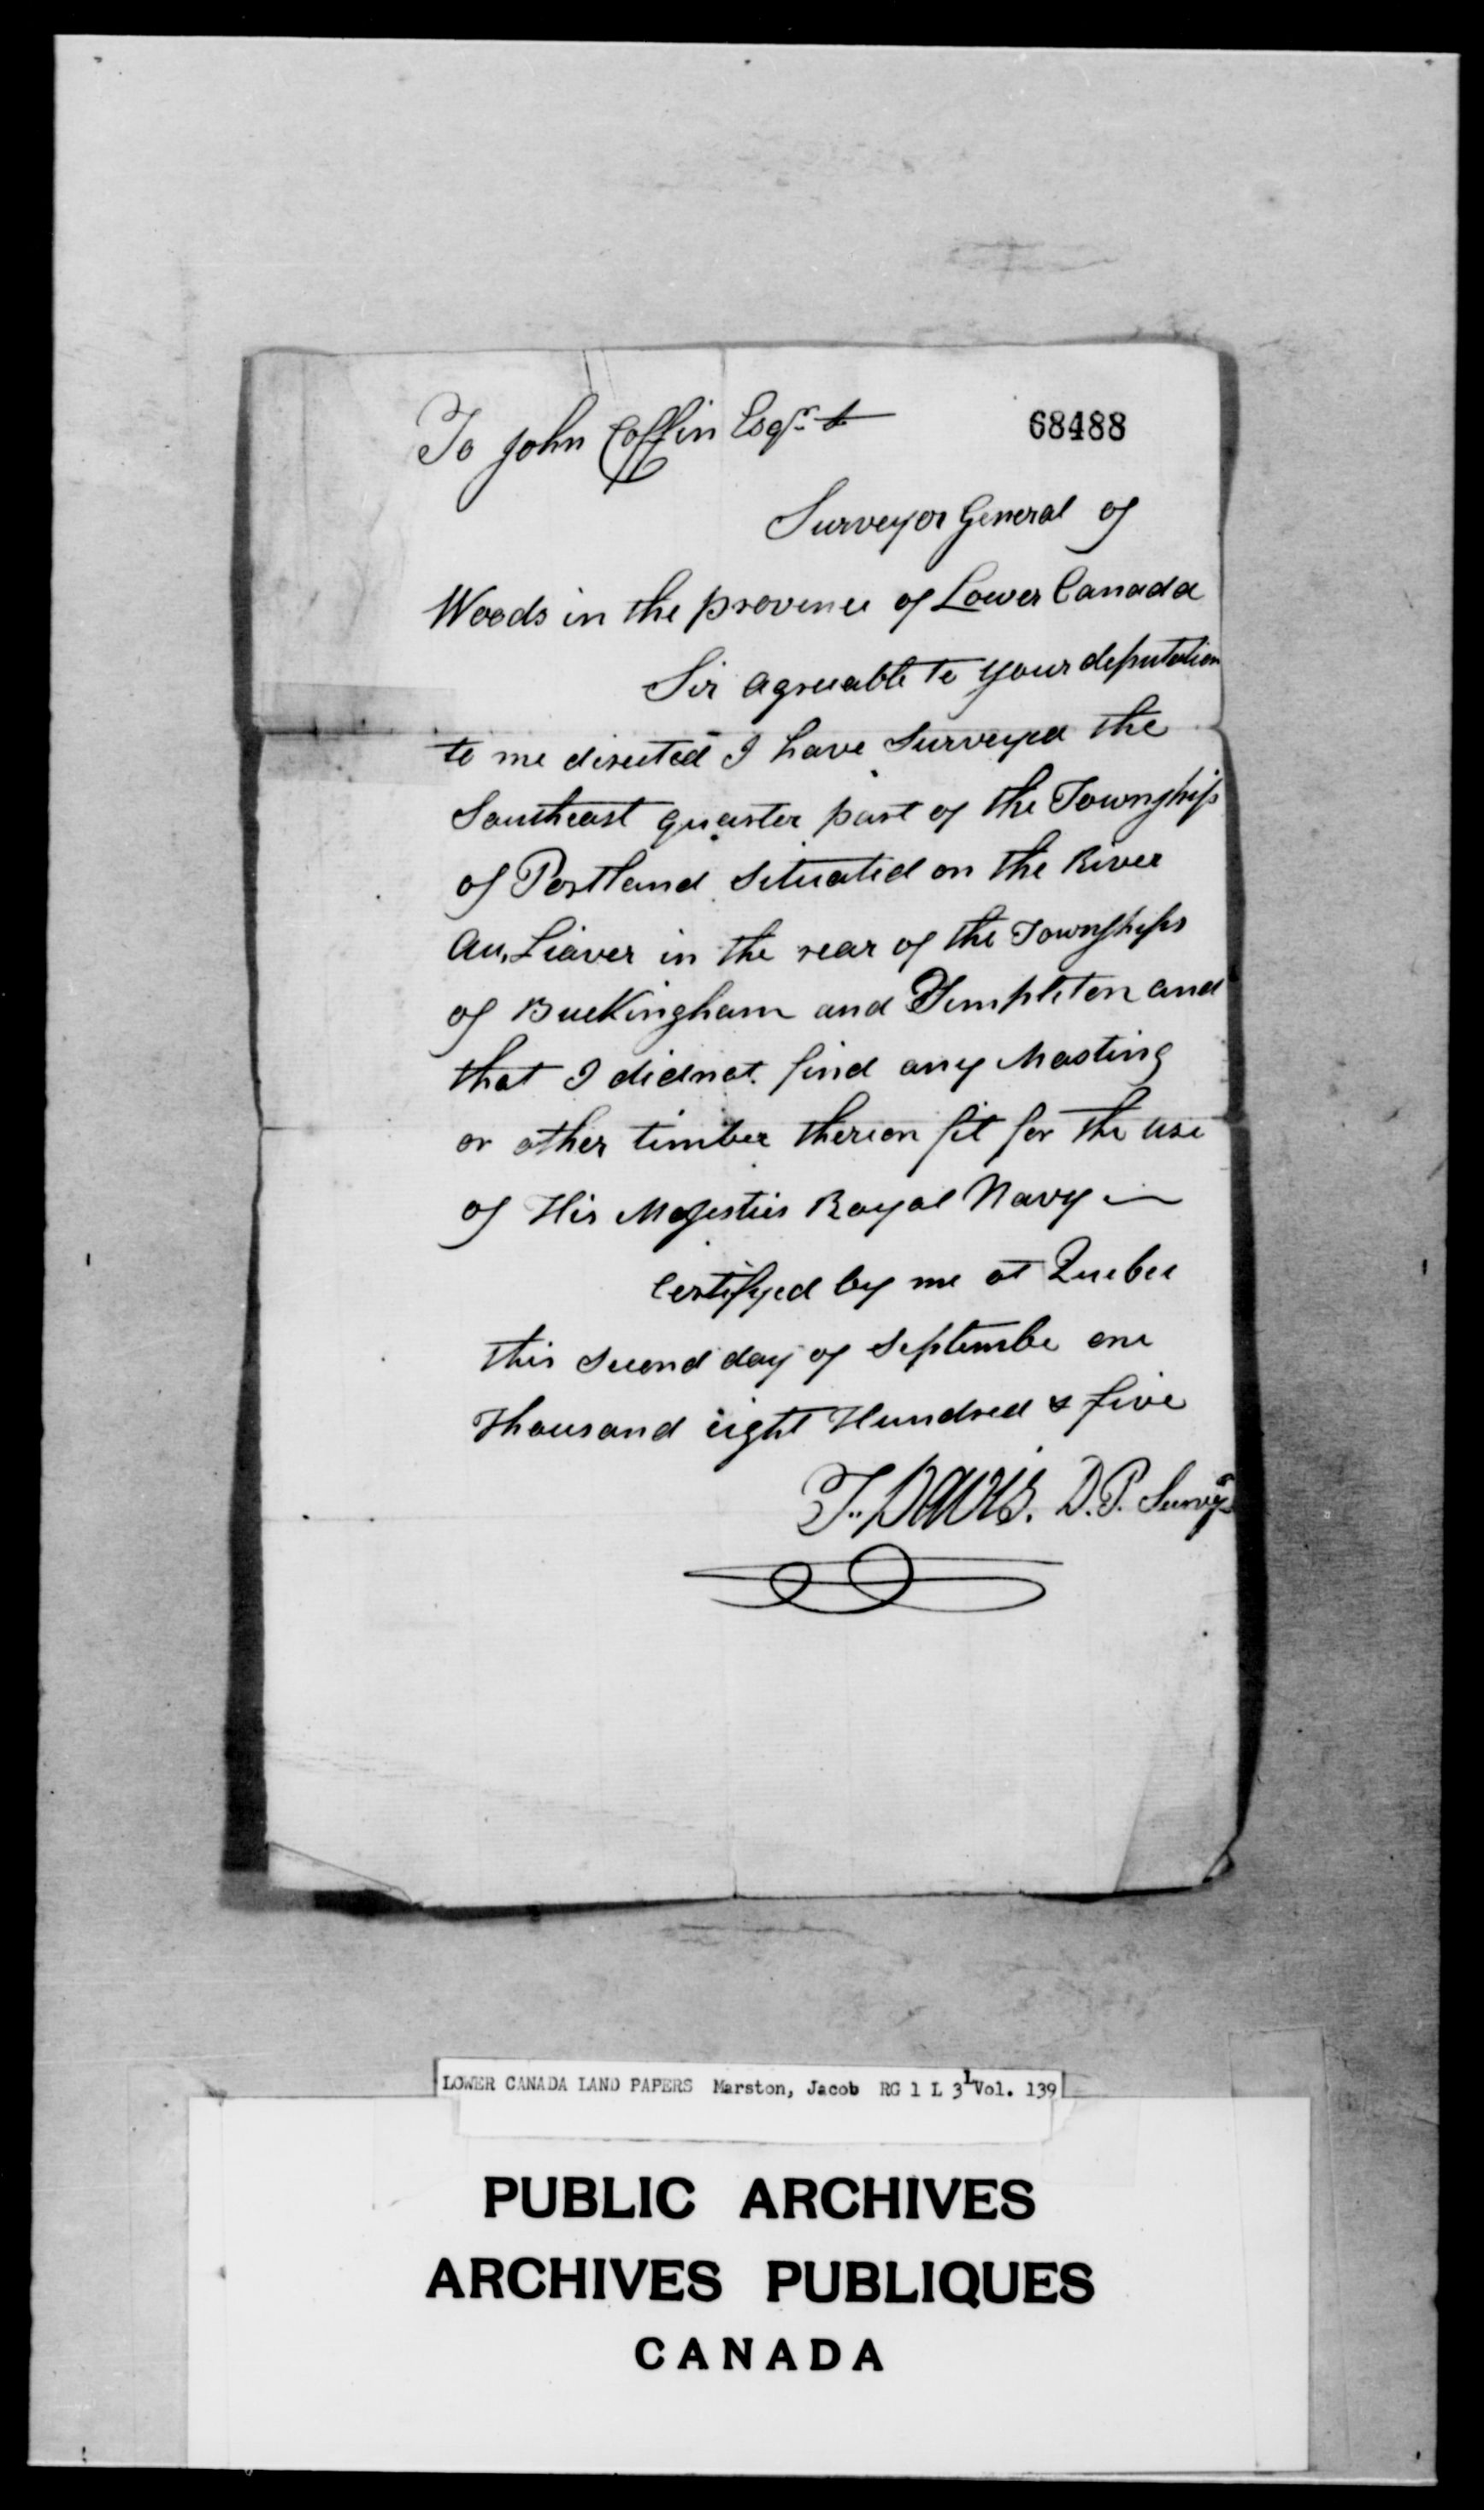 To John Coffin Esqr. &
68488
Surveyor General of
Woods in the provence of Lower Canada
Sir agreeable to your deputation
to me directed I have Surveyed the
Southeast quarter part of the Township
of Portland Situated on the River
Au, Liaver in the rear of the Townships
of Buckingham and Templeton and
that I didnot find any Masting
or other timber thereon fit for the use
of His Majesties Royal Navy —
Certifyed by me at Quebec
this Second day of Septembe one
Thousand eight Hundred & five
T. Davis. D. P. Survyr
LOWER CANADA LAND PAPERS Marston, Jacob RG 1 L 3L Vol. 139
PUBLIC ARCHIVES
ARCHIVES PUBLIQUES
CANADA